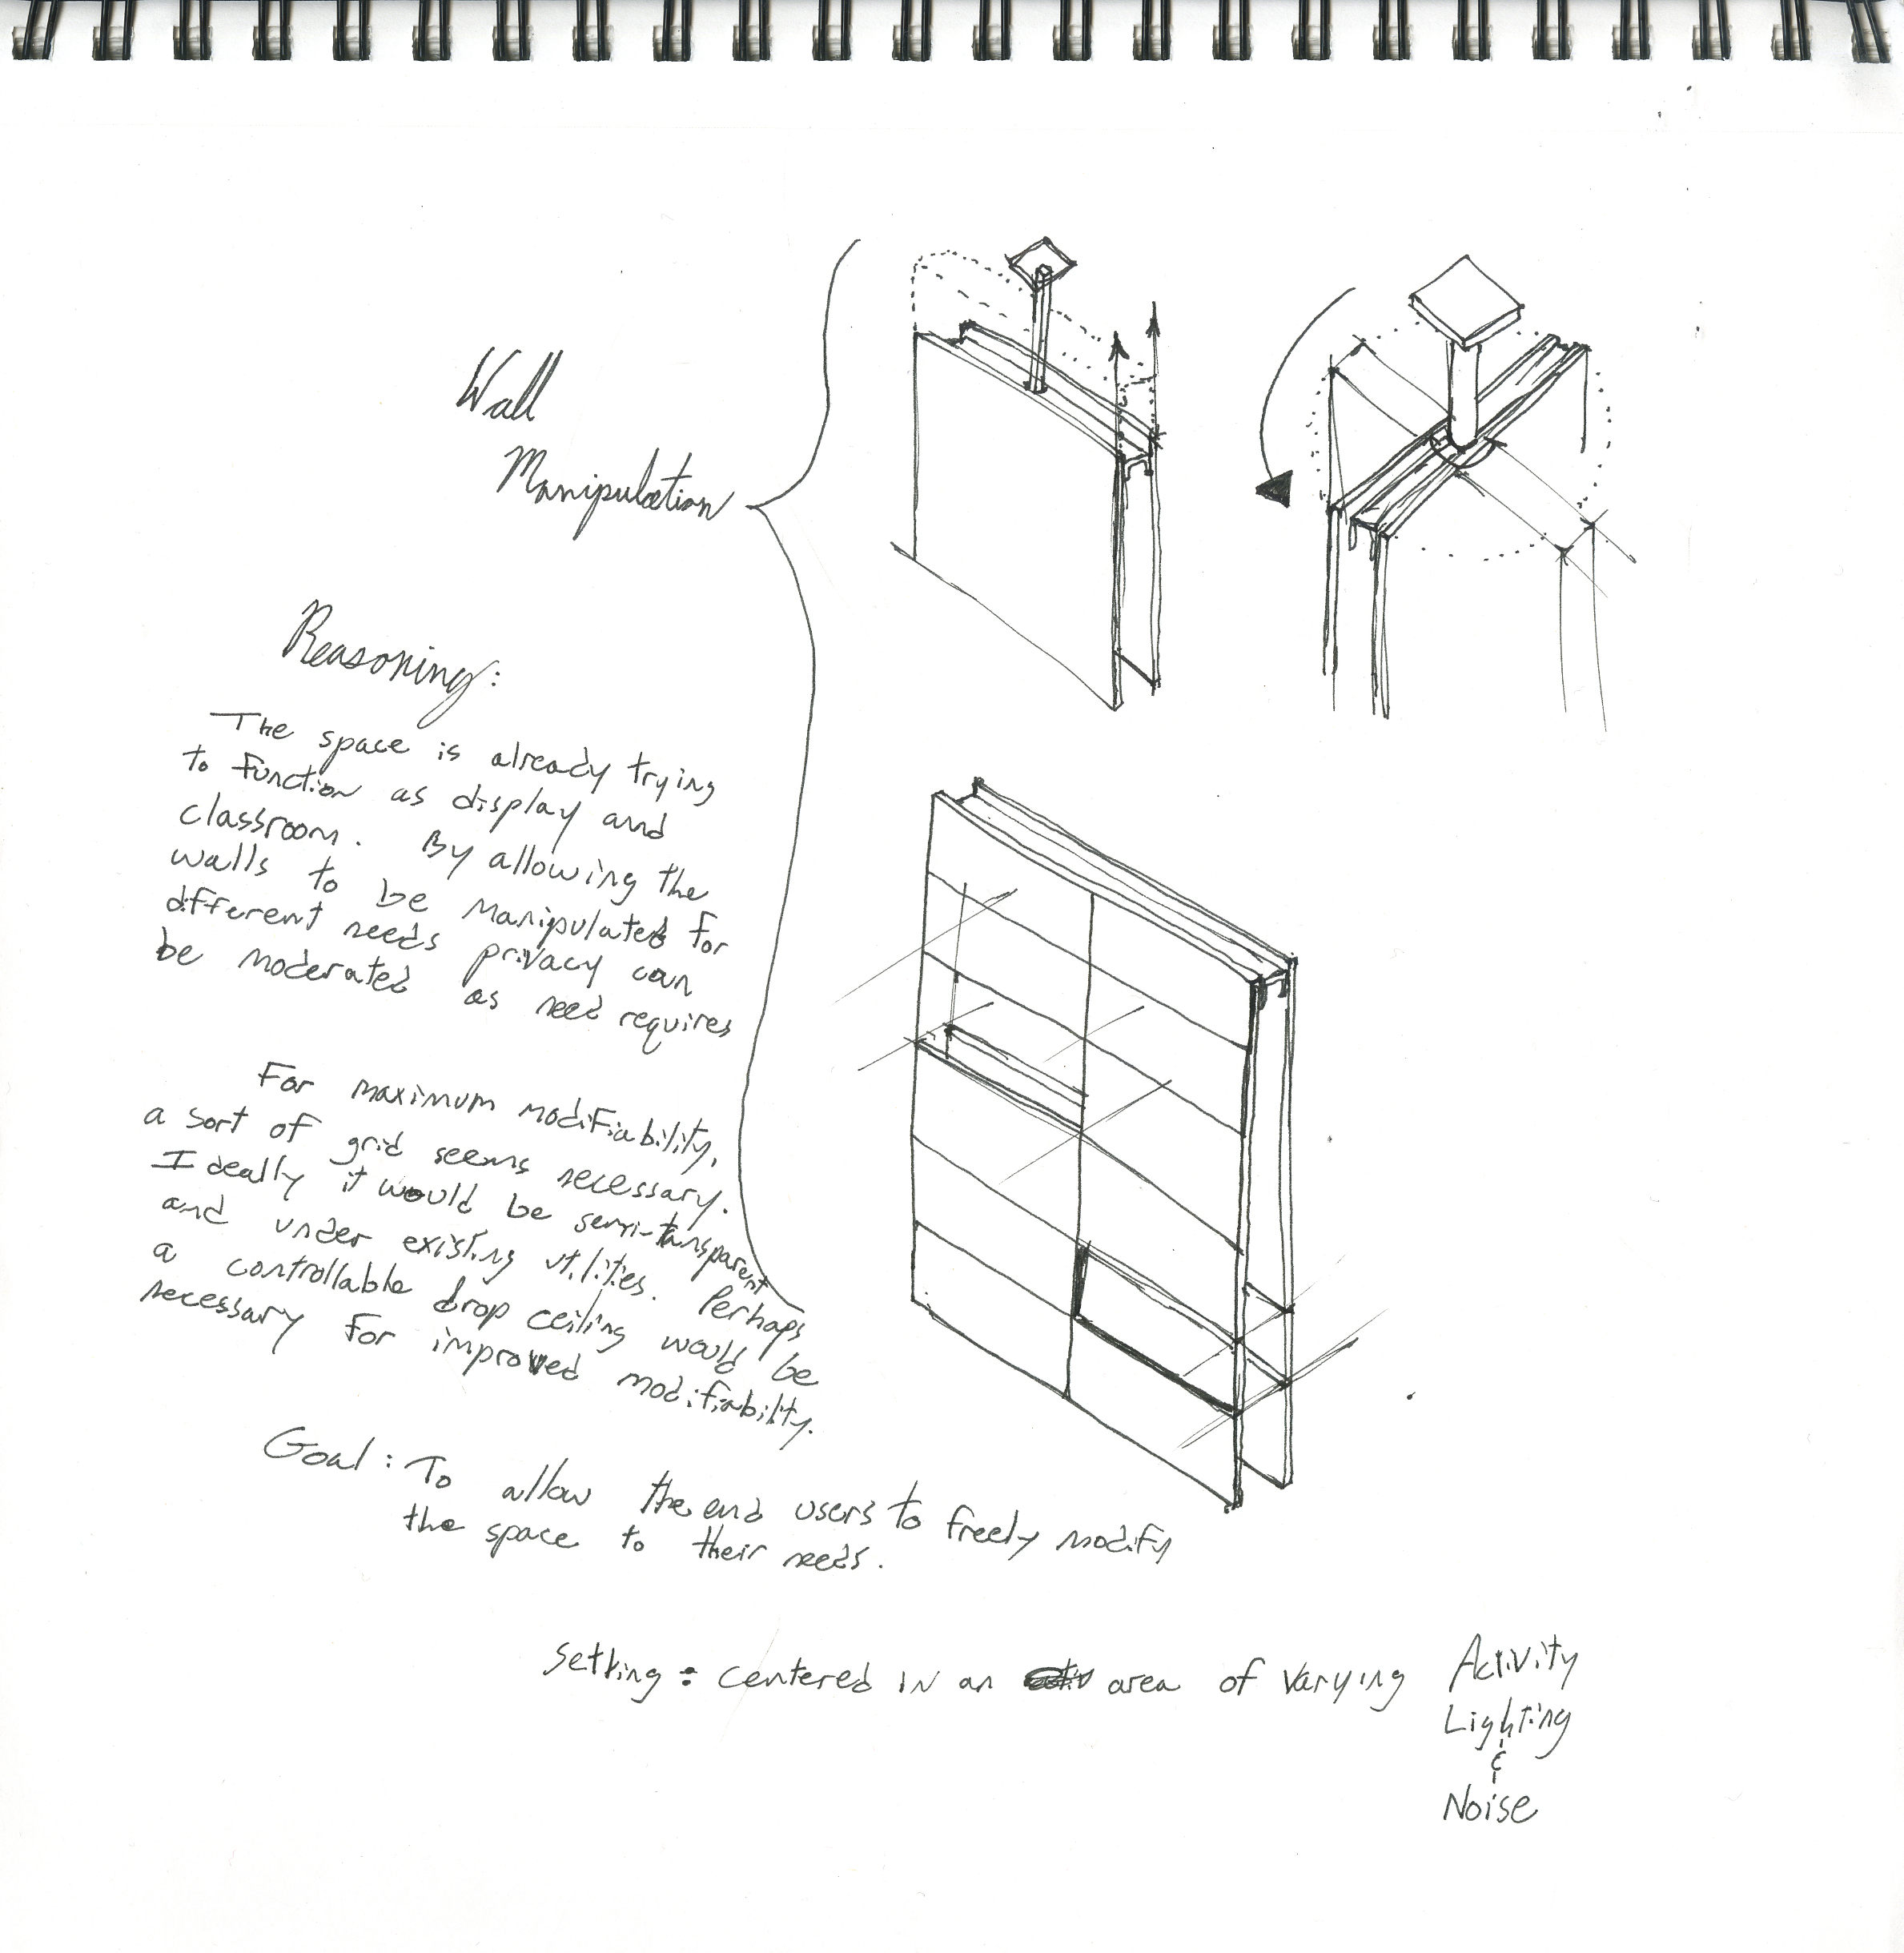 Wall
Manipulation
Reasoning:
The space is already trying
to function as display and
classroom. By allowing the
walls to be manipulated for
different needs privacy can
be moderated as need requires
For maximum modifiability,
a sort of grid seems necessary.
Ideally it would be semi-transparent
and under existing utilities. Perhaps
a controllable drop ceiling would be
necessary for improved modifiability.
Goal: To allow the end users to freely modify
the space to their needs.
Setting: centered in an area of varying Activity
Lighting
&
Noise